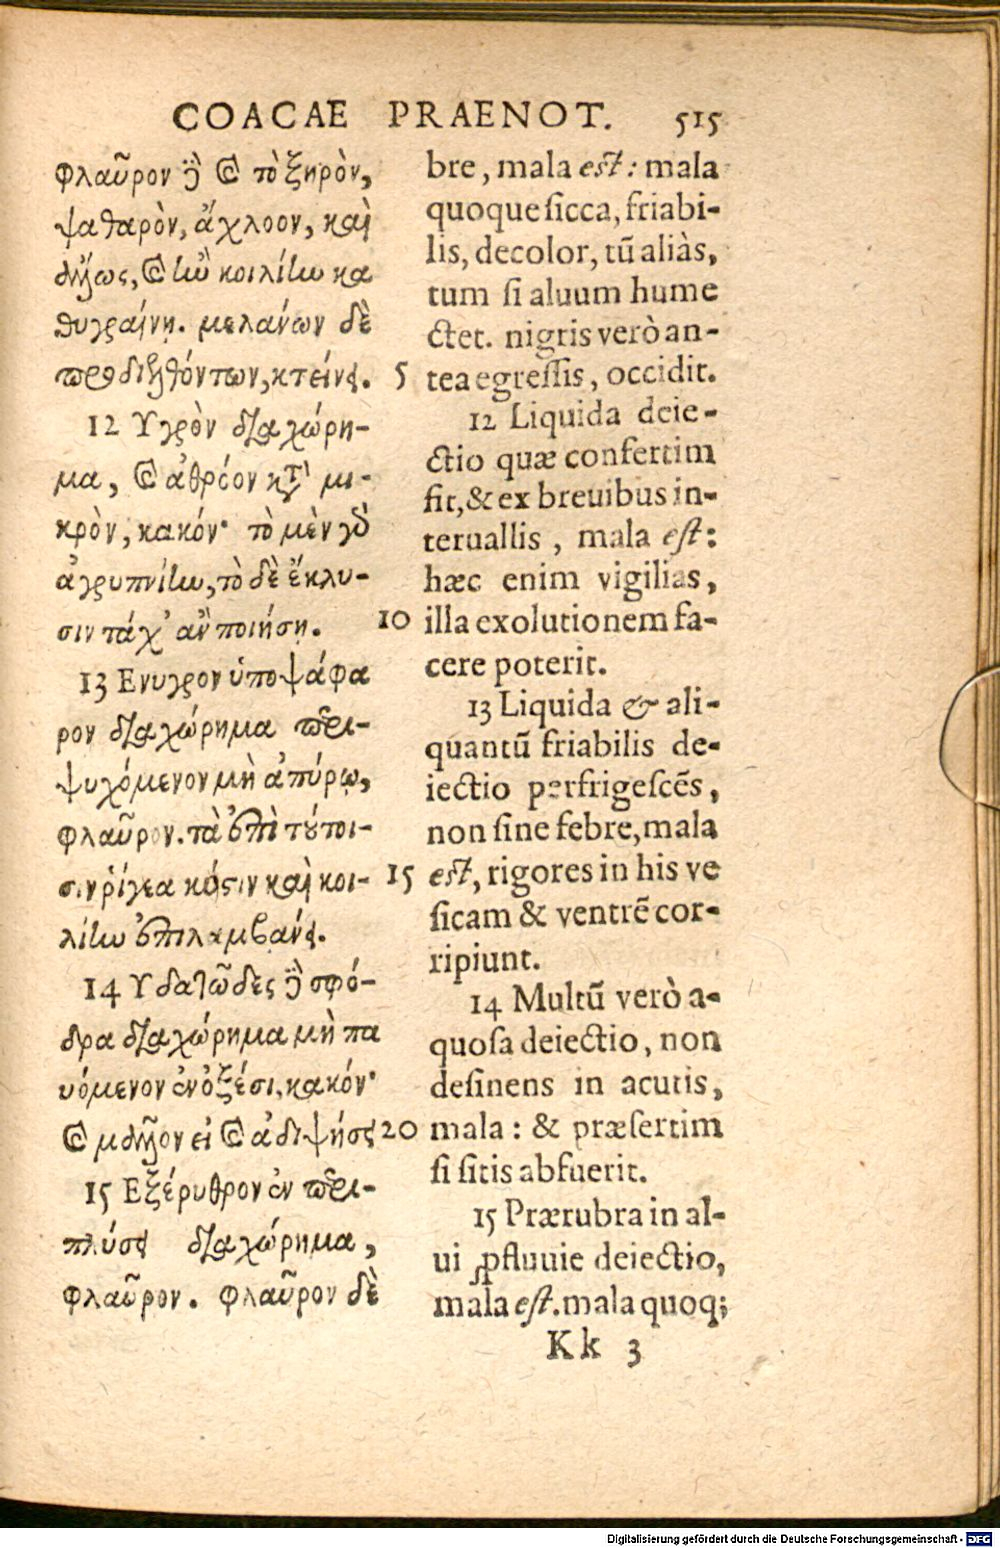 COACAE PRAENOT. 515
φλαῦρον ϗ τὸ ξηρὸν,
ψαθαρὸν, ἄχλοον, καὶ
ἄλλως, καὶ ἢν κοιλίην κα
θυγραίνῃ. μελάνων δὲ
προδιελθόντων, κτείνει.
12 Υγρὸν διαχώρη-
μα, καὶ ἀθρόον κατὰ μι-
κρὸν, κακόν· τὸ μὲν γὰρ
ἀγρυπνίην, τὸ δὲ ἔκλυ-
σιν τάχ' ἂν ποιήσῃ.
13 Ενυγρον ὑποψάφα
ρον διαχώρημα περι-
ψυχόμενον μὴ ἀπύρῳ,
φλαῦρον. τὰ ἐπὶ τούτοι-
σιν ῥίγεα κύστιν καὶ κοι-
λίην ἐπιλαμβάνει.
14 Υδατῶδες σφό-
δρα διαχώρημα μὴ πα
υόμενον ἐν ὀξέσι, κακόν·
καὶ μᾶλλον εἰ καὶ ἀδιψήσει
15 Εξέρυθρον ἐν περι-
πλύσει διαχώρημα,
φλαῦρον. φλαῦρον δὲ
5
10
15
20
bre, mala est: mala
quoque sicca, friabi-
lis, decolor, tũ aliàs,
tum si aluum hume
ctet. nigris verò an-
tea egressis, occidit.
12 Liquida deie-
ctio quæ confertim
fit, & ex breuibus in-
teruallis, mala est:
hæc enim vigilias,
illa exolutionem fa-
cere poterit.
13 Liquida & ali-
quantũ friabilis de-
iectio perfrigescẽs,
non sine febre, mala
est, rigores in his ve
sicam & ventrẽ cor-
ripiunt.
14 Multũ verò a-
quosa deiectio, non
desinens in acutis,
mala: & præsertim
si sitis absuerit.
15 Prærubra in al-
ui ꝓfluuie deiectio,
mala est. mala quoq;
Kk 3
Digitalisierung gefördert durch die Deutsche Forschungsgemeinschaft - DFG